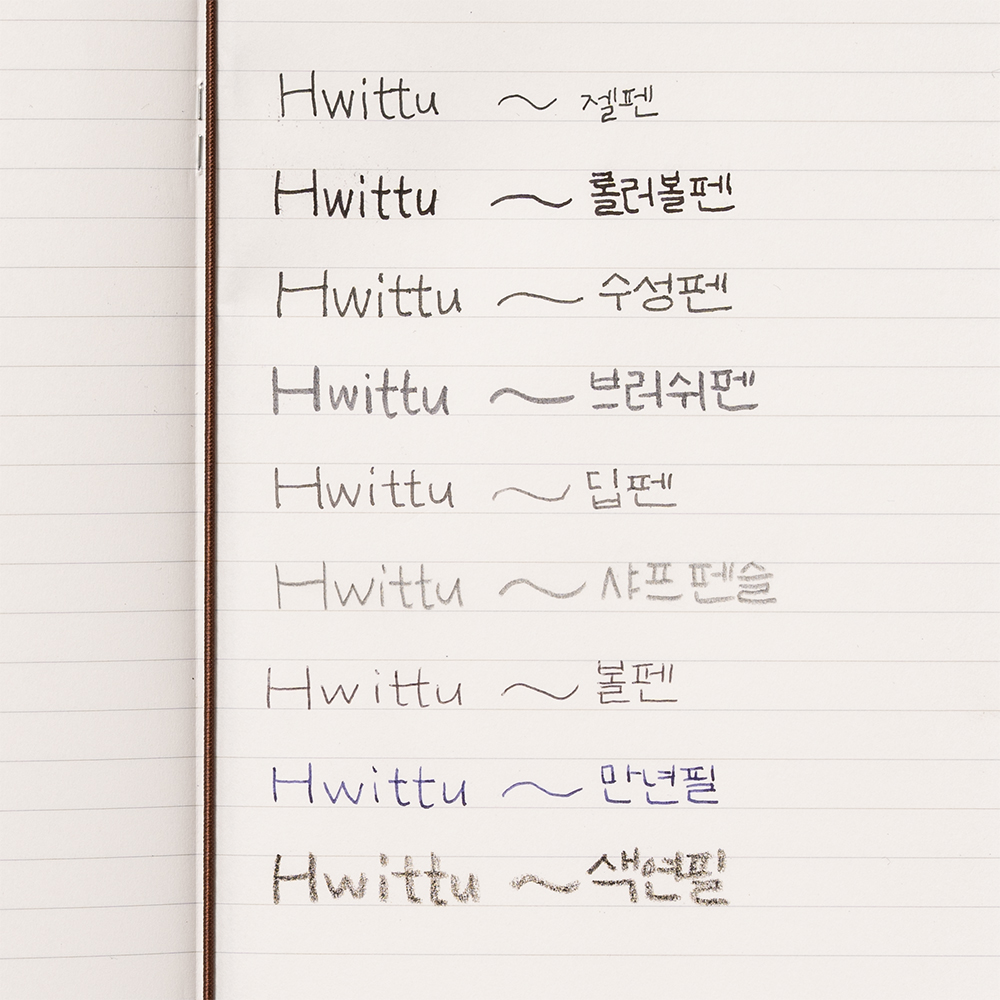 Hwittu ~ 젤펜
Hwittu ~ 롤러볼펜
Hwittu ~ 수성펜
Hwittu ~ 브러쉬펜
Hwittu ~ 딥펜
Hwittu ~ 샤프펜슬
Hwittu ~ 볼펜
Hwittu ~ 만년필
Hwittu ~ 색연필